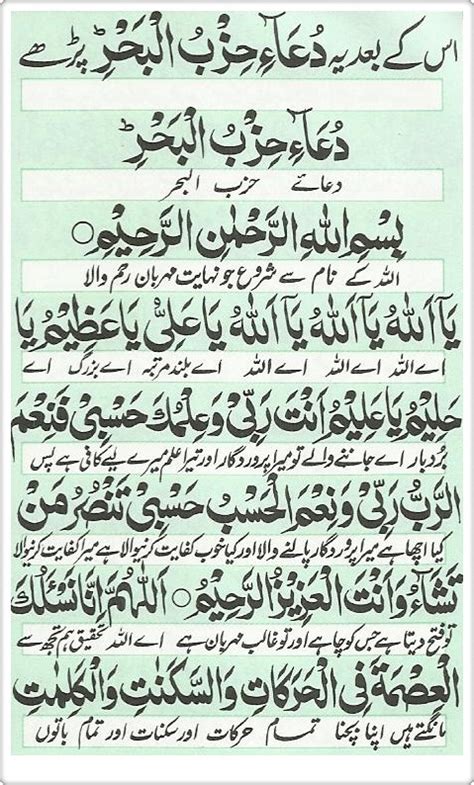 اس کے بعد یہ دُعَاءِ حِزْبُ الْبَحْرْ پڑھے
دُعَاءِ حِزْبُ الْبَحْرْ
دعائے حزب البحر
بِسْمِ اللهِ الرَّحْمٰنِ الرَّحِيْمِ ○
اللہ کے نام سے شروع جو نہایت مہربان رحم والا
يَآ اَللهُ يَآ اَللهُ يَآ اَللهُ يَا عَلِيُّ يَا عَظِيْمُ يَا
اے اللہ اے اللہ اے اللہ اے بلند مرتبہ اے بزرگ اے
حَلِيْمُ يَا عَلِيْمُ اَنْتَ رَبِّيْ وَعِلْمُكَ حَسْبِيْ فَنِعْمَ
بُردبار اے جاننے والے تو میرا پروردگار اور تیرا علم میرے لیے کافی ہے پس
الرَّبُّ رَبِّيْ وَنِعْمَ الْحَسْبُ حَسْبِيْ تَنْصُرُ مَنْ
کیا اچھا ہے میرا پروردگار پالنے والا اور کیا خوب کفایت کرنیوالا ہے میرا کفایت کرنیوالا
تَشَآءُ وَاَنْتَ الْعَزِيْزُ الرَّحِيْمُ ○ اَللّٰهُمَّ اِنَّا نَسْئَلُكَ
تو فتح دیتا ہے جس کو چاہے اور تو غالب مہربان ہے اے اللہ تحقیق ہم تجھ سے
الْعِصْمَةَ فِي الْحَرَكَاتِ وَالسَّكَنٰتِ وَالْكَلِمٰتِ
مانگتے ہیں اپنا بچنا تمام حرکات اور سکنات اور تمام باتوں